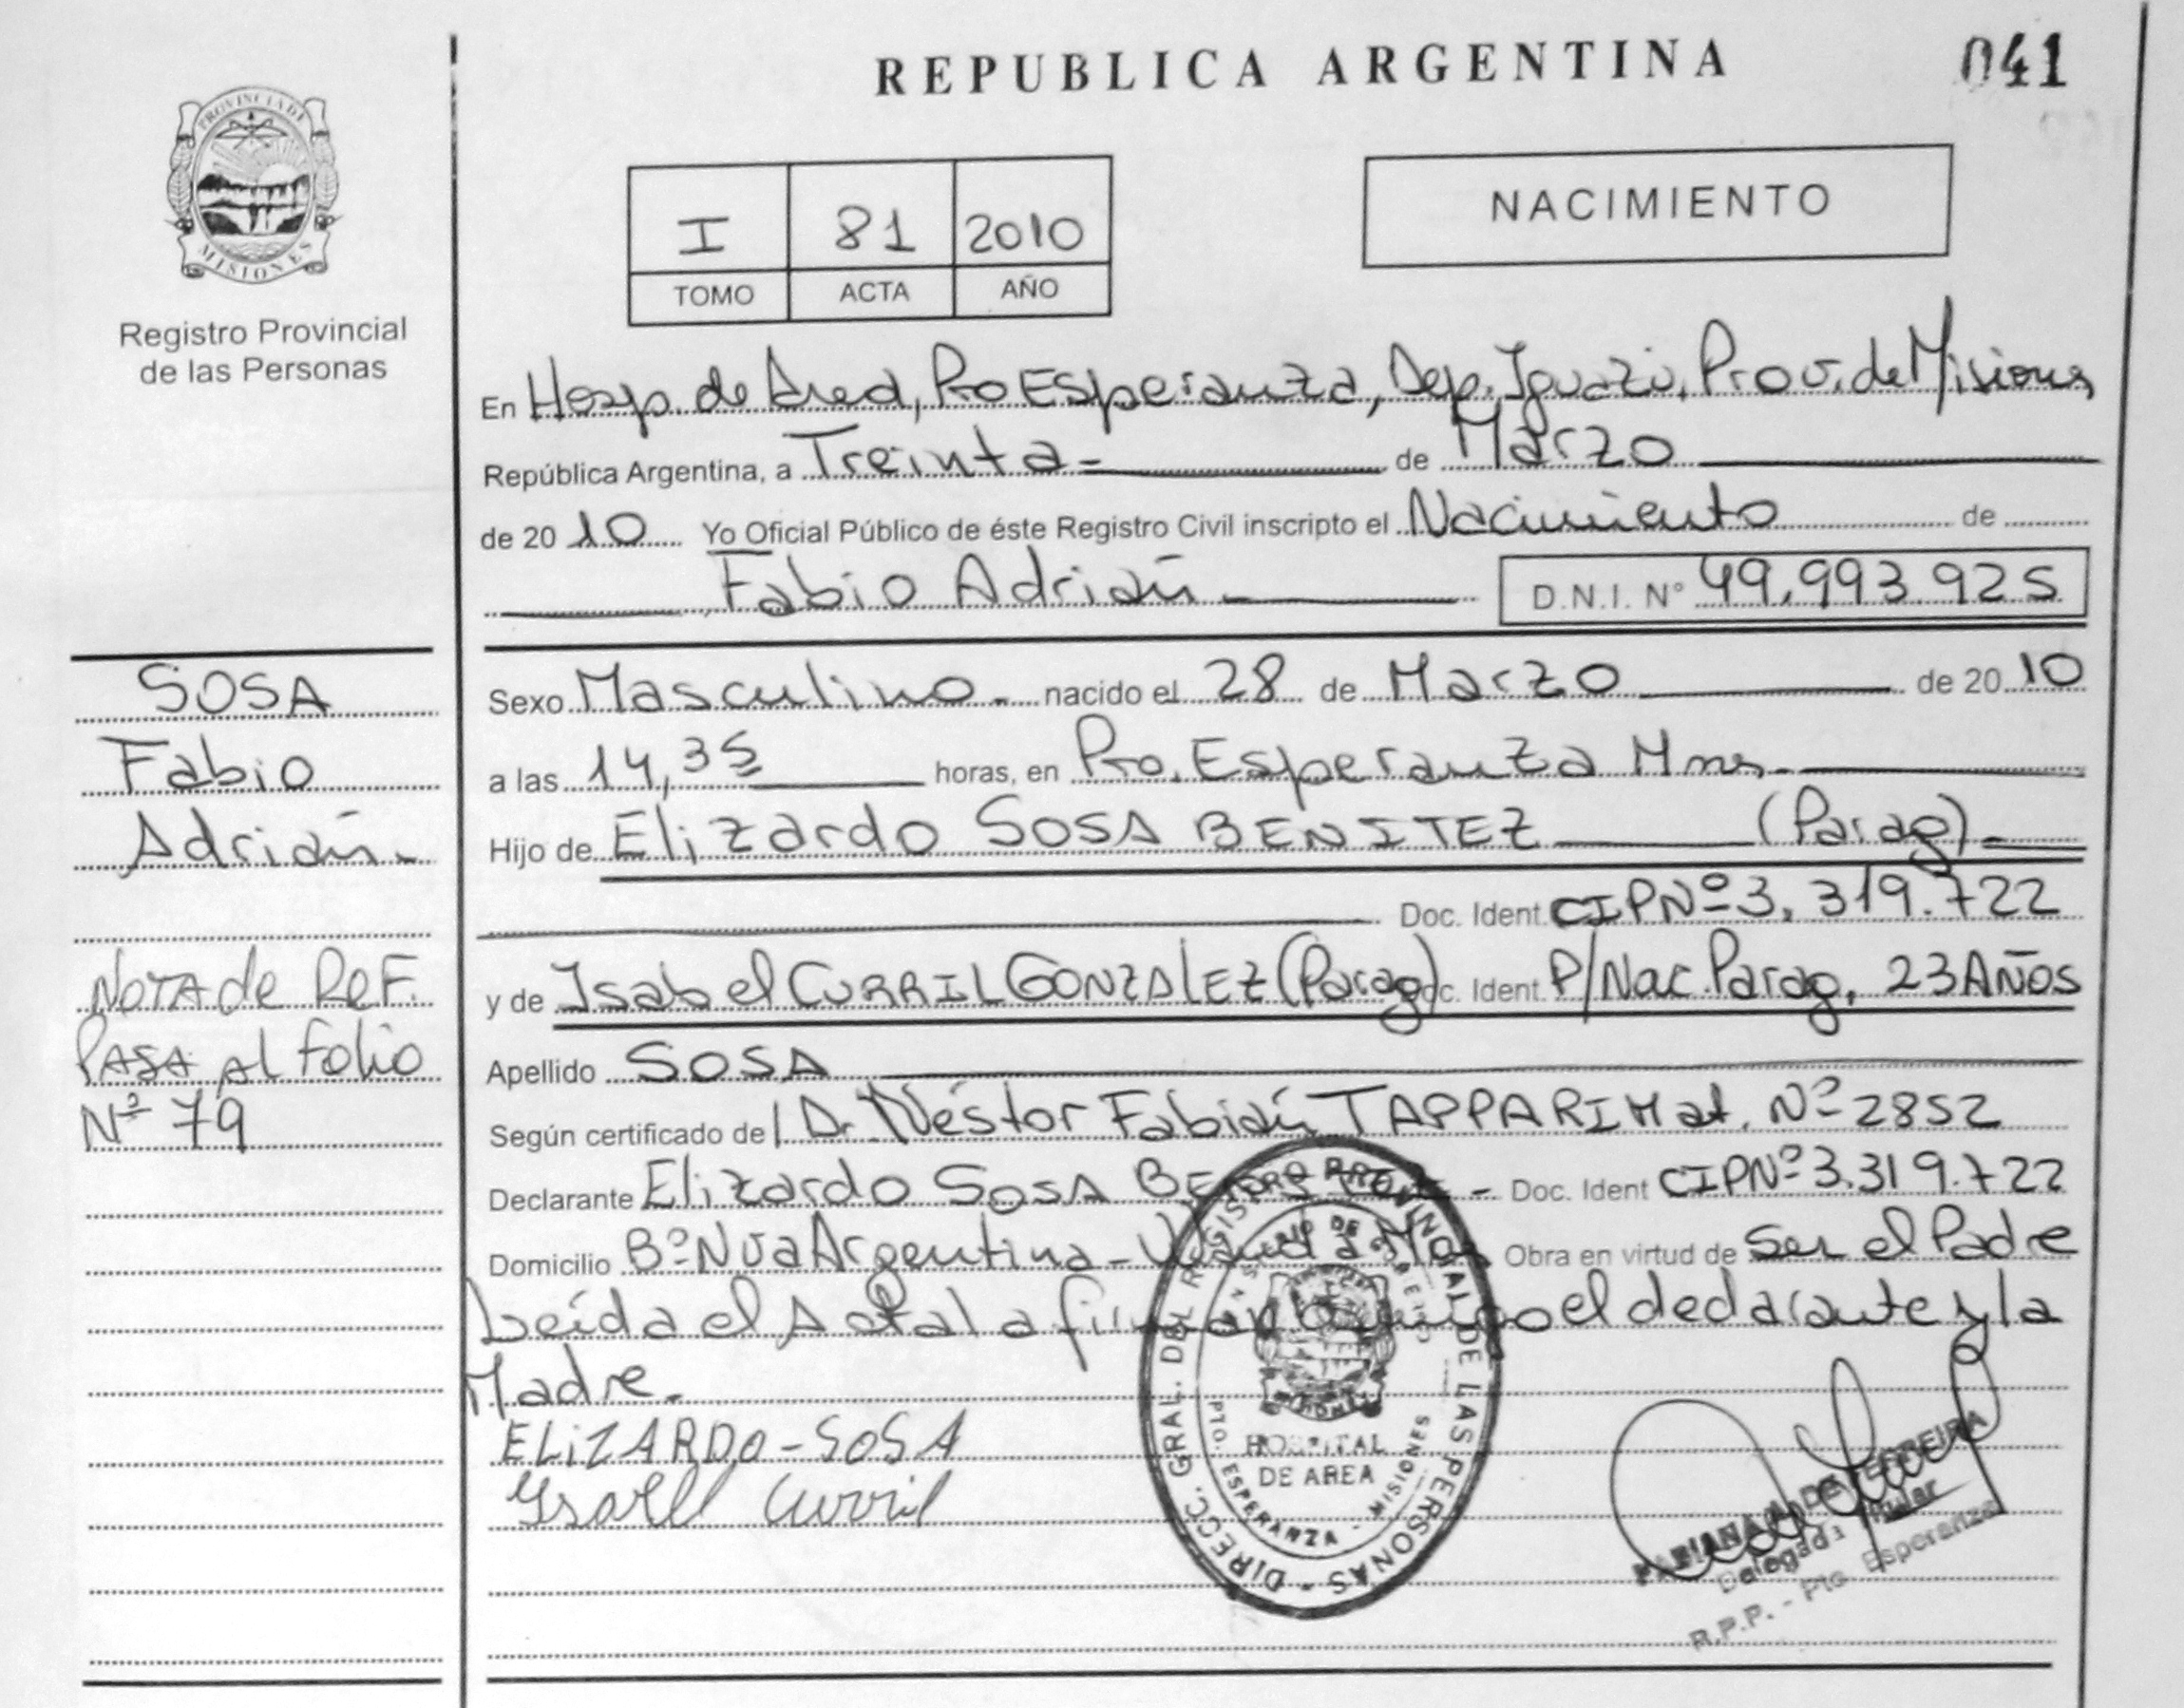 REPUBLICA ARGENTINA
041
PROVINCIA DE
MISIONES
Registro Provincial
de las Personas
I 81 2010
TOMO ACTA AÑO
NACIMIENTO
En Hosp. de Area, Pto Esperanza, Dep. Iguazú, Prov. de Misiones
República Argentina, a Treinta de Marzo
de 2010 Yo Oficial Público de éste Registro Civil inscripto el Nacimiento de
Fabio Adrián D.N.I. Nº 49.993.925
SOSA
Fabio
Adrián
NOTA de REF.
PASA al folio
Nº 79
Sexo Masculino nacido el 28 de Marzo de 2010
a las 14,35 horas, en Pto. Esperanza Mnes.
Hijo de Elizardo SOSA BENITEZ (Parag).
Doc. Ident. CIPNº 3.319.722
y de Isabel CURRIL GONZALEZ (Parag) Doc. Ident. P/Nac. Parag. 23 AÑOS
Apellido SOSA
Según certificado de Dr. Néstor Fabián TAPPARI Mat. Nº 2852
Declarante Elizardo SOSA BENITEZ - Doc. Ident CIPNº 3.319.722
Domicilio Bº Nva Argentina - Wanda Mnes Obra en virtud de Ser el Padre
Leída el Acta la firman conmigo el declarante y la
Madre.
ELIZARDO-SOSA
Ysabel Curril
DIRECC. GRAL. DEL REGISTRO PROVINCIAL DE LAS PERSONAS
MINISTERIO DE GOBIERNO
HOSPITAL
DE AREA
PTO. ESPERANZA - MISIONES
FABIANA A. DE FERREIRA
Delegada Titular
R.P.P. - Pto Esperanza